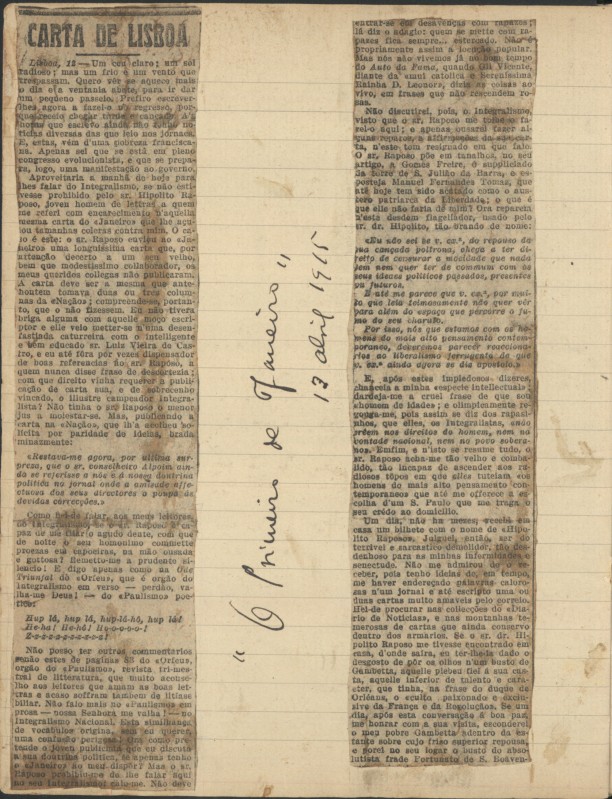 CARTA DE LISBOA
Lisboa, 12 — Um ceu claro; um sol
radioso; mas um frio e um vento que
trespassam. Quero vêr se aqueço mais
o dia e a ventania abate, para ir dar
um pequeno passeio. Prefiro escrever-
lhes agora a fazel-o no regresso, por-
que receio chegar tarde e cançado. A's
horas que escrevo ainda não tenho no-
ticias diversas das que leio nos jornaes.
E, estas, vêm d'uma pobreza francisca-
na. Apenas sei que se está em pleno
congresso evolucionista, e que se prepa-
ra, logo, uma manifestação ao governo.
Aproveitaria a manhã de hoje para
lhes falar do Integralismo, se não esti-
vesse prohibido pelo sr. Hipolito Ra-
poso, joven homem de letras, a quem
me referi com encarecimento n'aquella
mesma carta do «Janeiro» que lhe ago-
tou tamanhas coleras contra mim. O ca-
so é este: o sr. Raposo enviou ao «Ja-
neiro» uma longuissima carta que, por
attenção decerto a um seu velho,
bem que modestissimo collaborador, os
meus queridos collegas não publicaram.
A carta deve ser a mesma que ante-
hontem tomava duas ou tres columnas
da «Nação»; comprehende-se, portan-
to, que o não fizessem. Eu não tivera
briga alguma com aquelle moço escri-
ptor e elle veio metter-se n'uma desen-
fastiada caturreira com o intelligente
e bem educado sr. Luis Vieira de Cas-
tro, e eu até fôra por vezes dispensador
de boas referencias ao sr. Raposo, a
quem nunca disse frase de descortezia:
com que direito vinha requerer a publi-
cação de carta sua, e de sobrecenho
vincado, o illustre campeador Integra-
lista? Não tinha o sr. Raposo o menor
jus a molestar-se. Mas, publicando a
carta na «Nação», que lh'a acolheu so-
licita por paridade de ideias, brada
iminazmente:
«Restava-me agora, por ultima sur-
preza, que o sr. conselheiro Alpoim ain-
da se referisse a nós e á nossa doutrina
politica no jornal onde a amisade affe-
ctuosa dos seus directores o poupa de
devidas correcções.»
Como hei-de falar, aos meus leitores,
no Integralismo, se o sr. Raposo é ca-
paz de me
de noite o seu homonimo commette
proezas em capoeiras, na mão ousada
e gottosa? Remetto-me a prudente si-
lencio! E digo apenas como na Ode
Triunfal do «Orfeu», que é orgão do
Integralismo em verso — perdão, va-
lha-me Deus! — do «Paulismo» poe-
tico:
Hup lá, hup lá, hup-lá-hô, hup lá!
He-ha! He-hô! Ho-o-o-o-o!
Z-z-z-z-z-z-z-z-z-z!
Não posso ter outros commentarios
senão estes de paginas 83 do «Orfeu»,
orgão do «Paulismo», revista tri-mes-
tral de litteratura, que muito aconse-
lho aos leitores que amam as boas let-
ras e acaso soffram tambem de litiase
biliar. Não falo mais no «Paulismo» em
prosa — nossa Senhora me valha! — no
Integralismo Nacional. Esta similhança
de vocabulos origina, sem eu querer,
uma confusão perigosa! Mas como pre-
tende o joven publicista que eu discuta
a sua doutrina politica, se apenas tenho
o «Janeiro» ao meu dispôr? Mas o sr.
Raposo prohibiu-me de lhe falar aqui
no seu Integralismo! calo-me. Não deve
"O Primeiro de Janeiro"
13 abril 1915
entrar-se em desavenças com rapazes;
lá diz o adagio: quem se mette com ra-
pazes fica sempre... estornado. Não é
propriamente assim a locução popular.
Mas nós não vivemos já no bom tempo
do Auto da Fama, quando Gil Vicente,
diante da «mui catolica e serenissima
Rainha D. Leonor», dizia as coisas ao
vivo, em frases que não rescendem ro-
sas.
Não discutirei, pois, o Integralismo,
visto que o sr. Raposo me tolhe o fa-
zel-o aqui; e apenas ousarei fazer al-
guns reparos, a
ta, n'este tom resignado em que falo.
O sr. Raposo põe em tanalhas, no seu
artigo, a Gomes Freire, o supplicìado
da torre de S. Julião da Barra, e es-
posteja Manuel Fernandes Tomás, que
até hoje tem sido acatado como o aus-
tero patriarca da Liberdade; o que é
que elle não faria de mim? Ora reparem
n'este desdem flagellador, usado pelo
sr. dr. Hipolito, tão brando de nome:
«Eu não sei se v. exª., do repouso da
sua cançada poltrona, chega a ter di-
reito de censurar a mocidade que nada
tem nem quer ter de commum com os
seus ideaes politicos passados, presentes
ou futuros.
E até me parece que v. exª., por mui-
to que leia teimosamente não quer vêr
para além do espaço que percorre o fu-
mo do seu charuto.
Por isso, nós que estamos com os ho-
mens do mais alto pensamento contem-
poraneo, deveremos parecer reacciona-
rios ao liberalismo ferrugento de que
v. exª ainda agora se diz apostolo.»
E, após estes impiedosos dizeres,
chancela a minha «esperie intellectual»;
dardeja-me a cruel frase de que sou
«homem de idade»; e olimpicamente re-
gouga-me, pois assim se diz dos rapo-
sinhos, que elles, os Integralistas, «não
crêem nos direitos do homem, nem na
vontade nacional, nem no povo sobera-
no». Emfim, e n'isto se resume tudo, o
sr. Raposo acha-me tão velho e comba-
lido, tão incapaz de ascender aos ra-
diosos tôpos em que elles tutelam «os
homens do mais alto pensamento con-
temporaneo» que até me offerece a es-
colha d'um S. Paulo que me traga o
seu crédo ao domicilio.
Um dia, não ha mezes, recebi em
casa um bilhete com o nome de «Hipo-
lito Raposo». Julguei, então, ser do
terrivel e sarcastico demolidor, tão des-
denhoso para as minhas infermidades e
senectude. Não me admirou de o re-
ceber, pois tenho ideias de, em tempo,
me haver endereçado palavras caloro-
sas n'um jornal e até escripto uma ou
duas cartas muito amaveis pelo correio.
Hei-de procurar nas collecções do «Dia-
rio de Noticias», e nas montanhas te-
merosas de cartas que ainda conservo
dentro dos armarios. Se o sr. dr. Hi-
polito Raposo me tivesse encontrado em
casa, d'onde saíra, eu ter-lhe-ia dado o
desgosto de pôr os olhos n'um busto de
Gambetta, aquelle plebeu fiel á sua cas-
ta, aquelle inferior de talento e cara-
cter, que tinha, na frase do duque de
Orléans, o «culto apaixonado e exclu-
sivo da França e da Revolução». Se um
dia, após esta conversação á boa paz,
me honrar com a sua visita, esconderei
o meu pobre Gambetta «dentro da es-
tante sobre cujo friso superior repousa,
e porei no seu logar o busto do abso-
lutista frade Fortunato de S. Boaven-